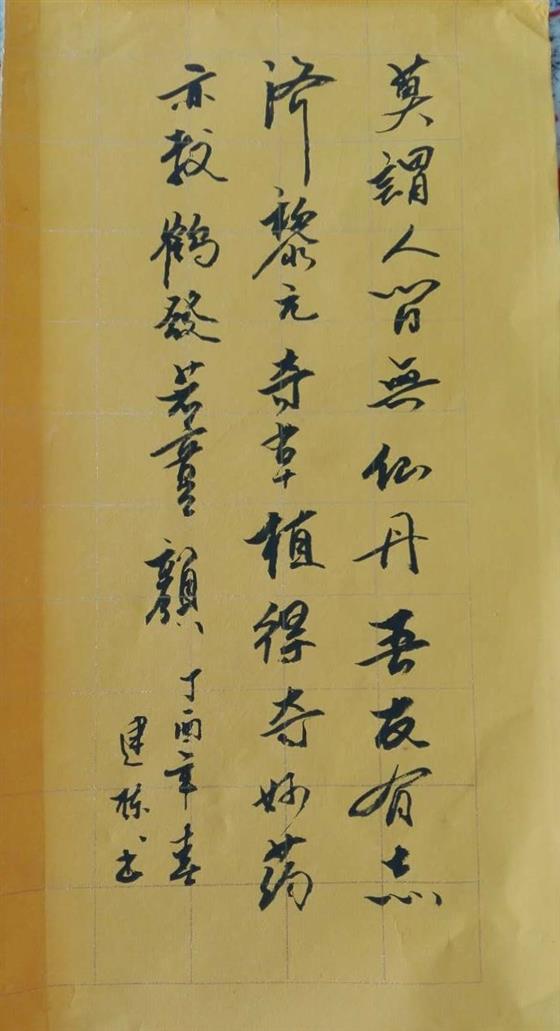 莫謂人间無仙丹吾友有志
济黎元寺草植得奇妙药
亦教鹤發若童顏
丁酉年春
建栋书